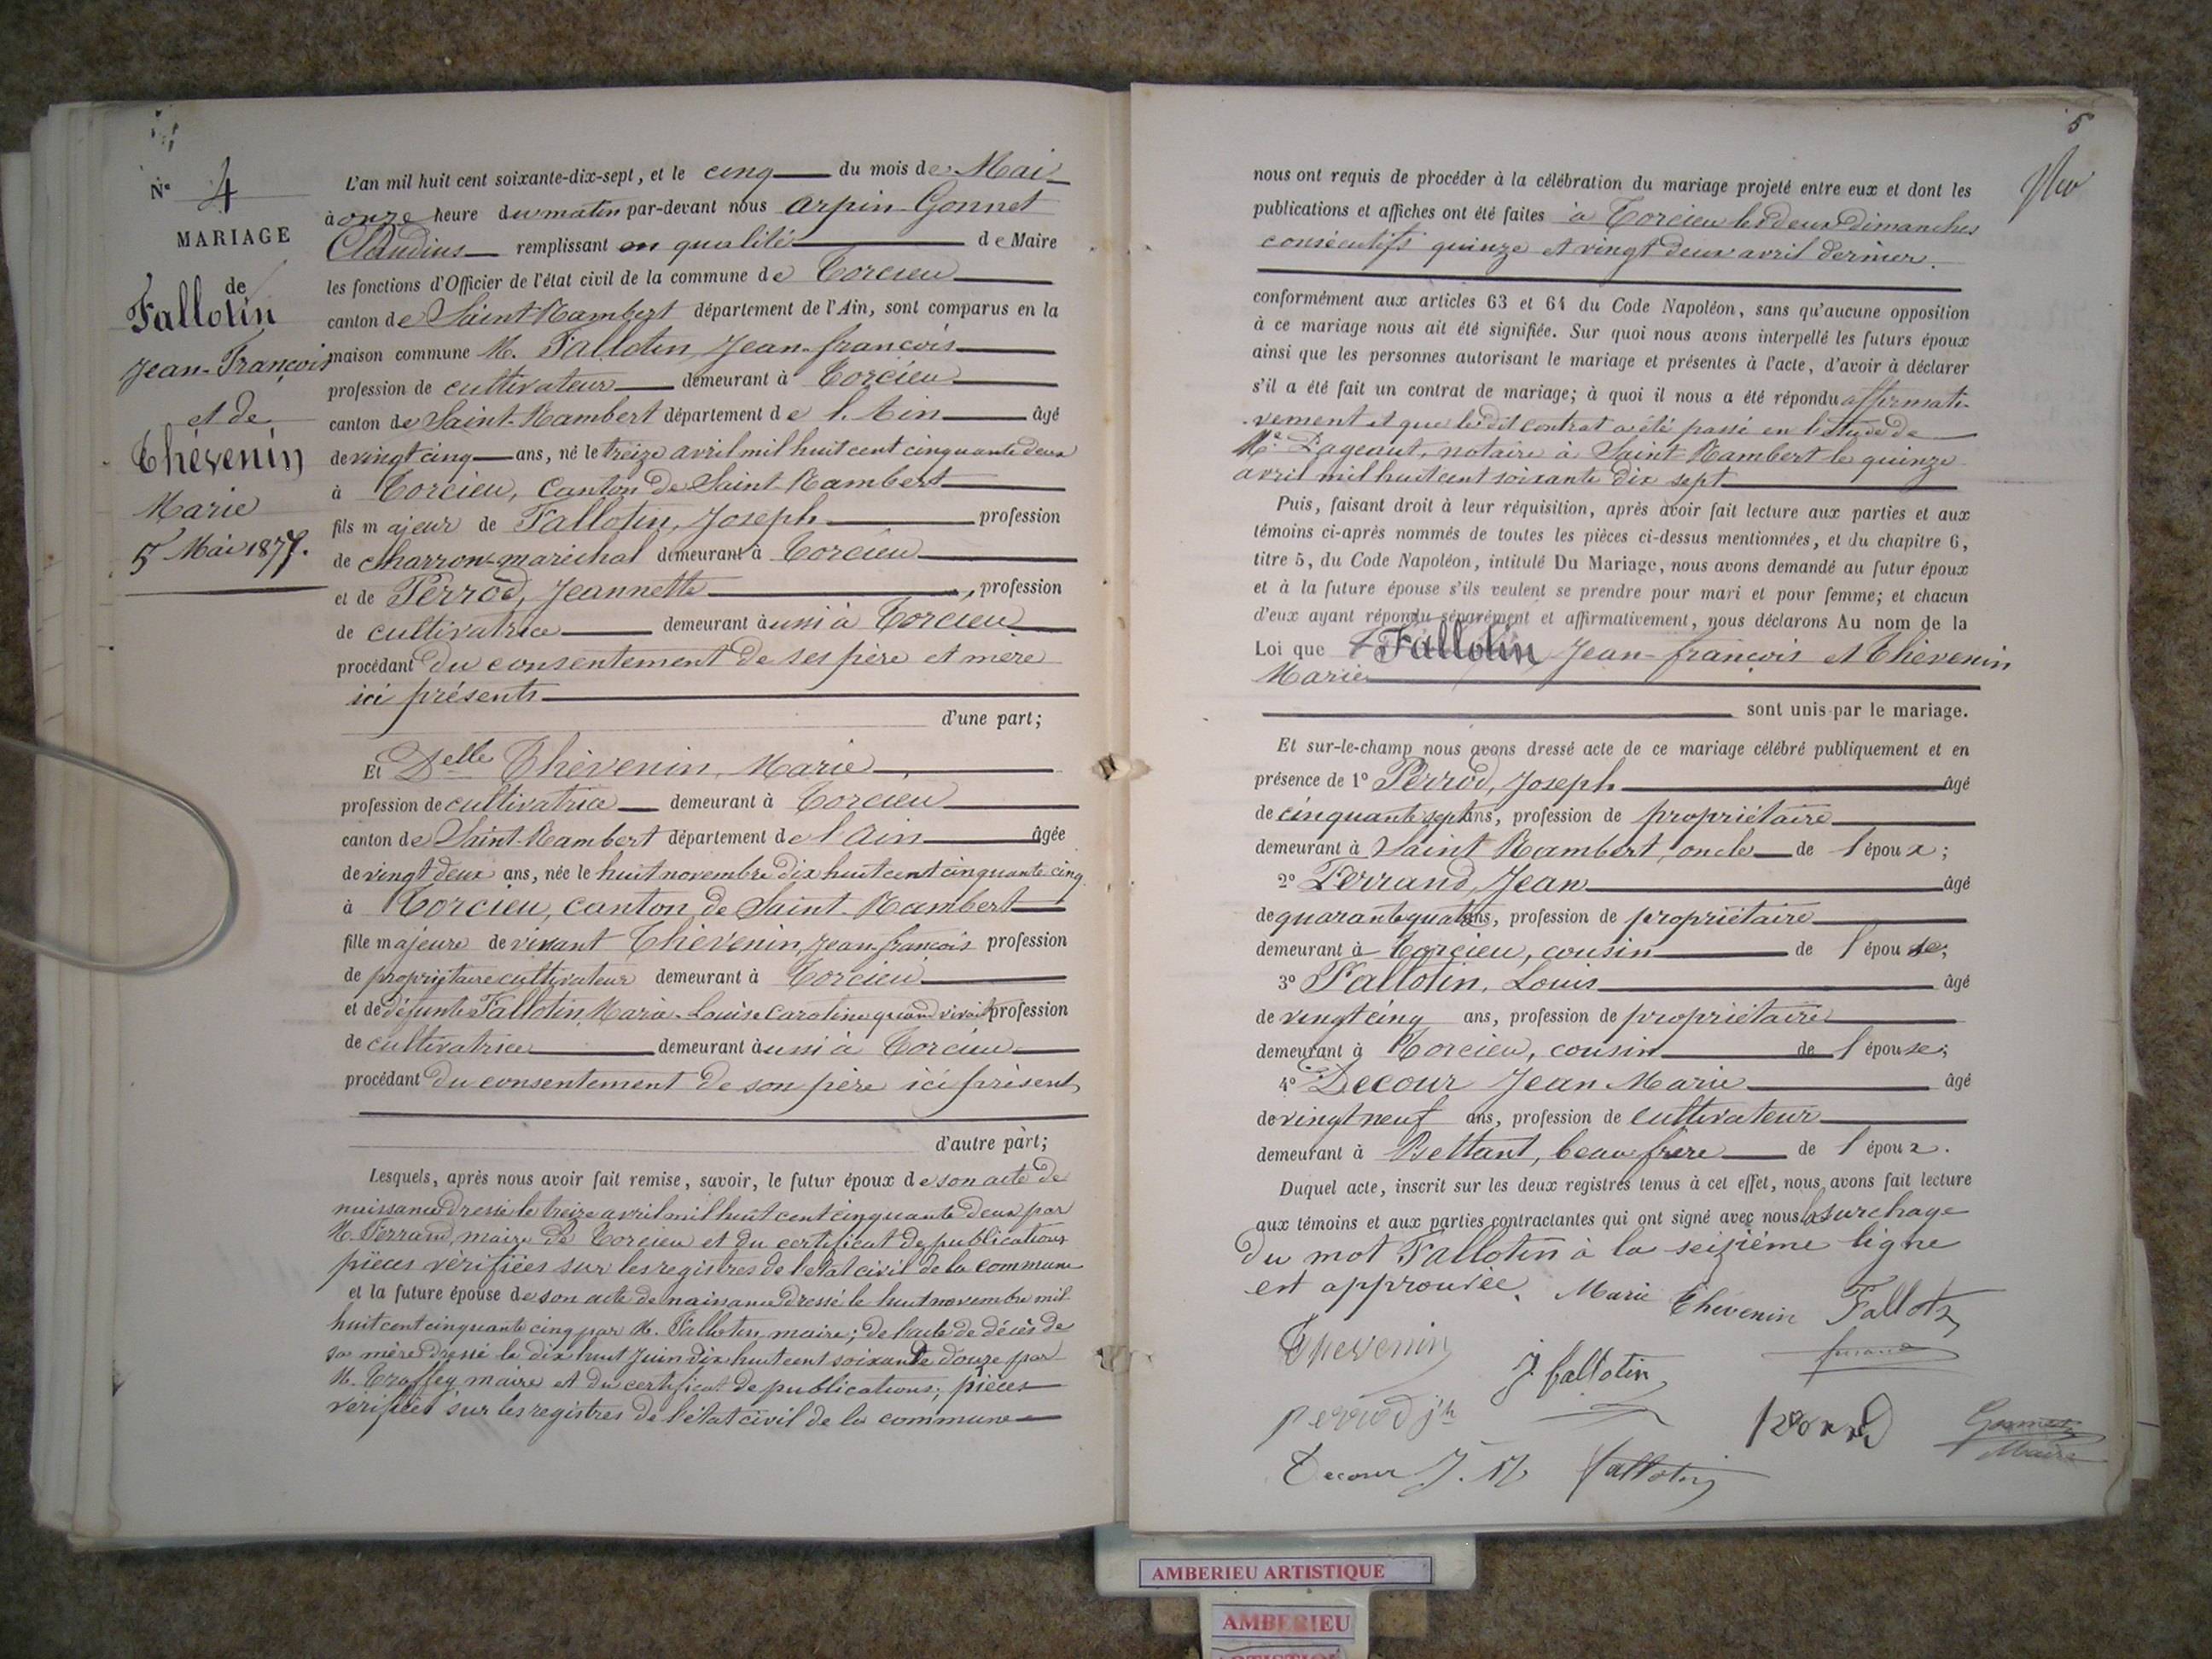 N° 4
MARIAGE
de
Fallotin
Jean-François
et de
Thévenin
Marie
5 Mai 1877.
L'an mil huit cent soixante-dix-sept, et le cinq du mois de Mai
à onze heure du matin par-devant nous Arpin-Gonnet
Claudius remplissant en qualité de Maire
les fonctions d'Officier de l'état civil de la commune de Torcieu
canton de Saint Rambert département de l'Ain, sont comparus en la
maison commune M. Fallotin, Jean-françois
profession de cultivateur demeurant à Torcieu
canton de Saint-Rambert département de l'Ain âgé
de vingt cinq ans, né le treize avril mil huit cent cinquante deux
à Torcieu, Canton de Saint-Rambert
fils majeur de Fallotin, Joseph profession
de charron-maréchal demeurant à Torcieu
et de Perrod, Jeannette, profession
de cultivatrice demeurant aussi à Torcieu
procédant du consentement de ses père et mère
ici présents
d'une part;
Et Delle Thévenin, Marie,
profession de cultivatrice demeurant à Torcieu
canton de Saint-Rambert département de l'Ain âgée
de vingt deux ans, née le huit novembre dix huit cent cinquante cinq
à Torcieu, canton de Saint-Rambert
fille majeure de vivant Thévenin, Jean-françois profession
de propriétaire cultivateur demeurant à Torcieu
et de défunte Fallotin, Marie-Louise Caroline quand vivait profession
de cultivatrice demeurant aussi à Torcieu
procédant du consentement de son père ici présent,
d'autre part;
Lesquels, après nous avoir fait remise, savoir, le futur époux de son acte de
naissance dressé le treize avril mil huit cent cinquante deux par
M. Ferrand, maire de Torcieu et du certificat de publications
pièces vérifiées sur les registres de l'état civil de la commune
et la future épouse de son acte de naissance dressé le huit novembre mil
huit cent cinquante cinq par M. Fallotin, maire; de l'acte de décès de
sa mère dressé le dix huit Juin dix huit cent soixante douze par
M. Troffey maire et du certificat de publications; pièces
vérifiées sur les registres de l'état civil de la commune
5
nous ont requis de procéder à la célébration du mariage projeté entre eux et dont les
publications et affiches ont été faites à Torcieu les deux dimanches
consécutifs quinze et vingt deux avril dernier.
conformément aux articles 63 et 64 du Code Napoléon, sans qu'aucune opposition
à ce mariage nous ait été signifiée. Sur quoi nous avons interpellé les futurs époux
ainsi que les personnes autorisant le mariage et présentes à l'acte, d'avoir à déclarer
s'il a été fait un contrat de mariage; à quoi il nous a été répondu affirmati-
vement et que le dit contrat a été passé en l'étude de
Me Dageaut, notaire à Saint-Rambert le quinze
avril mil huit cent soixante dix sept
Puis, faisant droit à leur réquisition, après avoir fait lecture aux parties et aux
témoins ci-après nommés de toutes les pièces ci-dessus mentionnées, et du chapitre 6,
titre 5, du Code Napoléon, intitulé Du Mariage, nous avons demandé au futur époux
et à la future épouse s'ils veulent se prendre pour mari et pour femme; et chacun
d'eux ayant répondu séparément et affirmativement, nous déclarons Au nom de la
Loi que Fallotin Jean-françois et Thévenin
Marie
sont unis par le mariage.
Et sur-le-champ nous avons dressé acte de ce mariage célébré publiquement et en
présence de 1° Perrod, Joseph âgé
de cinquante sept ans, profession de propriétaire
demeurant à Saint Rambert, oncle de l'époux;
2° Ferrand, Jean âgé
de quarante quatre ans, profession de propriétaire
demeurant à Torcieu, cousin de l'épouse;
3° Fallotin, Louis âgé
de vingt cinq ans, profession de propriétaire
demeurant à Torcieu, cousin de l'épouse;
4° Decour Jean Marie âgé
de vingt neuf ans, profession de cultivateur
demeurant à Bettant, beau frère de l'époux.
Duquel acte, inscrit sur les deux registres tenus à cet effet, nous avons fait lecture
aux témoins et aux parties contractantes qui ont signé avec nous la surchage
du mot Fallotin à la seizième ligne
est approuvée. Marie Thévenin Fallotin
Thevenin J. fallotin ferrand
perrod jh perrod Gonnet
Maire
Decour J. M fallotin
AMBERIEU ARTISTIQUE
AMBERIEU
ARTISTIQUE